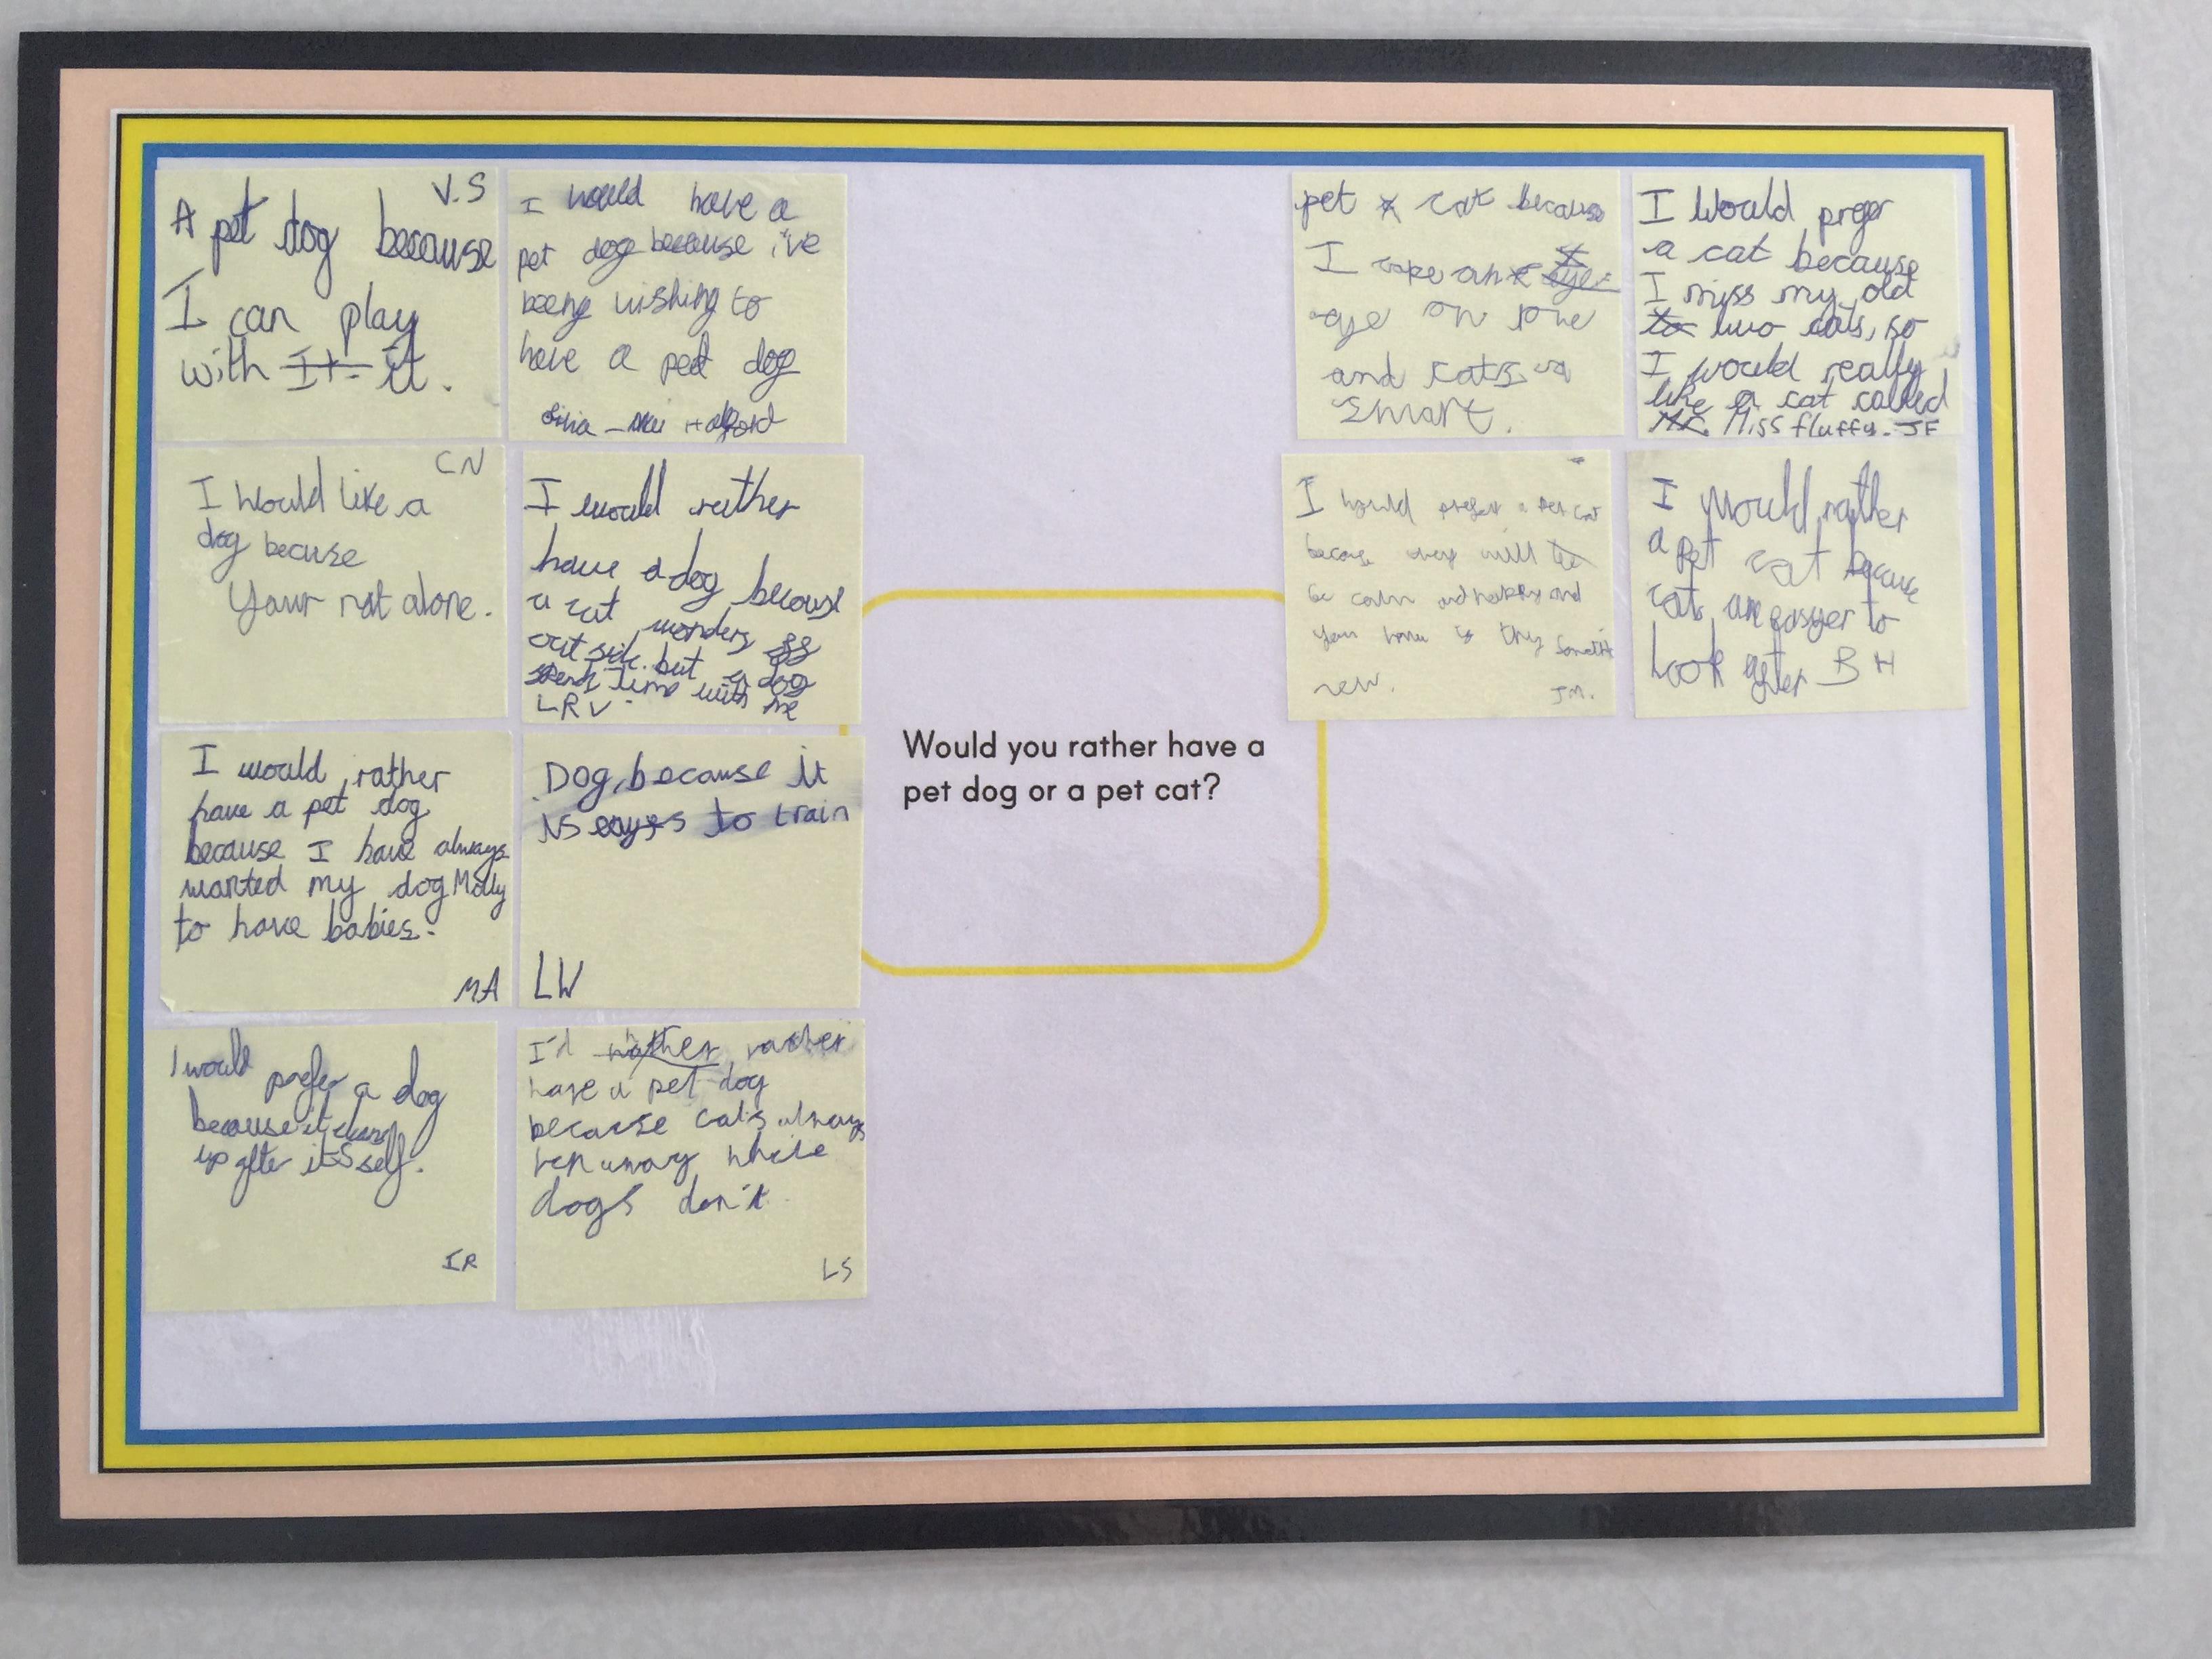 V.S
A pet dog because
I can play
with It it.
I would have a
pet dog because i've
being wishing to
have a pet dog
CN
I would like a
dog becuse
Your not alone.
I would rather
have a dog because
a cat wonders off
outside but a dog
spend time with me
LRV
I would rather
have a pet dog
because I have always
wanted my dog Molly
to have babies.
MA
Dog, because it
is to train
LW
I would prefer a dog
because it
up after itsself.
IR
I'd rather
have a pet dog
because cats always
run away while
dogs don't
LS
Would you rather have a
pet dog or a pet cat?
pet cat because
I an
on
and cats
smart.
I would prefer
a cat because
I miss my old
two cats, so
I would really
like a cat called
Miss fluffy. JF
I would prefer a pet cat
because will
be calm and happy and
your home is
new.
JM.
I would rather
a pet cat because
cats are easyer to
look after BH